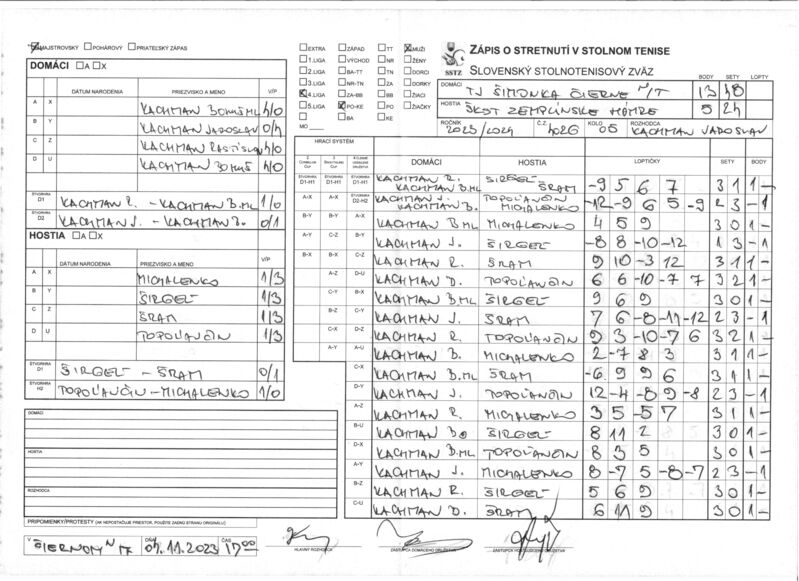 MAJSTROVSKÝ POHÁROVÝ PRIATEĽSKÝ ZÁPAS
DOMÁCI A X
DÁTUM NARODENIA PRIEZVISKO A MENO V/P
A X KACHMAN BOHUŠ ML 4/0
B Y KACHMAN JAROSLAV 0/4
C Z KACHMAN RASTISLAV 4/0
D U KACHMAN BOHUŠ 4/0
ŠTVORHRA D1 KACHMAN R. - KACHMAN B.ML 1/0
ŠTVORHRA D2 KACHMAN J. - KACHMAN B. 0/1
HOSTIA A X
DÁTUM NARODENIA PRIEZVISKO A MENO V/P
A X MICHALENKO 1/3
B Y ŠIRGEĽ 1/3
C Z ŠRAM 1/3
D U TOPOĽANČIN 1/3
ŠTVORHRA D1 ŠIRGEĽ - ŠRAM 0/1
ŠTVORHRA H2 TOPOĽANČIN - MICHALENKO 1/0
DOMÁCI
HOSTIA
ROZHODCA
PRIPOMIENKY/PROTESTY (AK NEPOSTAČUJE PRIESTOR, POUŽITE ZADNÚ STRANU ORIGINÁLU)
V ČIERNOM N/T DŇA 04.11.2023 ČAS 17:00
HLAVNÝ ROZHODCA ZÁSTUPCA DOMÁCEHO DRUŽSTVA ZÁSTUPCA HOSŤUJÚCEHO DRUŽSTVA
EXTRA ZÁPAD TT MUŽI
1.LIGA VÝCHOD NR ŽENY
2.LIGA BA-TT TN DORCI
3.LIGA NR-TN ZA DORKY
4.LIGA ZA-BB BB ŽIACI
5.LIGA PO-KE PO ŽIAČKY
MO BA KE
SSTZ
ZÁPIS O STRETNUTÍ V STOLNOM TENISE
SLOVENSKÝ STOLNOTENISOVÝ ZVÄZ
BODY SETY LOPTY
DOMÁCI TJ ŠIMONKA ČIERNE N/T 13 48
HOSTIA ŠKST ZEMPLÍNSKE HÁMRE 5 24
ROČNÍK 2023/2024 Č.Z. 4026 KOLO 05 ROZHODCA KACHMAN JAROSLAV
HRACÍ SYSTÉM
DOMÁCI HOSTIA LOPTIČKY SETY BODY
ŠTVORHRA D1-H1 ŠTVORHRA D1-H1 ŠTVORHRA D1-H1 KACHMAN R. KACHMAN B.ML ŠIRGEĽ ŠRAM -9 5 6 7 3 1 1 -
A-X A-X ŠTVORHRA D2-H2 KACHMAN J. KACHMAN B. TOPOĽANČIN MICHALENKO -12 -9 6 5 -9 2 3 - 1
B-Y B-Y A-X KACHMAN B.ML MICHALENKO 4 5 9 3 0 1 -
A-Y C-Z B-Y KACHMAN J. ŠIRGEĽ -8 8 -10 -12 1 3 - 1
B-X B-X C-Z KACHMAN R. ŠRAM 9 10 -3 12 3 1 1 -
A-Z D-U KACHMAN B. TOPOĽANČIN 6 6 -10 -7 7 3 2 1 -
C-Y B-X KACHMAN B.ML ŠIRGEĽ 9 6 9 3 0 1 -
B-Z C-Y KACHMAN J. ŠRAM 7 6 -8 -11 -12 2 3 - 1
C-X D-Z KACHMAN R. TOPOĽANČIN 9 3 -10 -7 6 3 2 1 -
A-Y A-U KACHMAN B. MICHALENKO 2 -7 8 3 3 1 1 -
C-X KACHMAN B.ML ŠRAM -6 9 9 6 3 1 1 -
D-Y KACHMAN J. TOPOĽANČIN 12 -4 -8 9 -8 2 3 - 1
A-Z KACHMAN R. MICHALENKO 3 5 -5 7 3 1 1 -
B-U KACHMAN B. ŠIRGEĽ 8 11 2 3 0 1 -
D-X KACHMAN B.ML TOPOĽANČIN 8 3 5 3 0 1 -
A-Y KACHMAN J. MICHALENKO 8 -7 5 -8 -7 2 3 - 1
B-Z KACHMAN R. ŠIRGEĽ 5 6 9 3 0 1 -
C-U KACHMAN B. ŠRAM 6 11 9 3 0 1 -